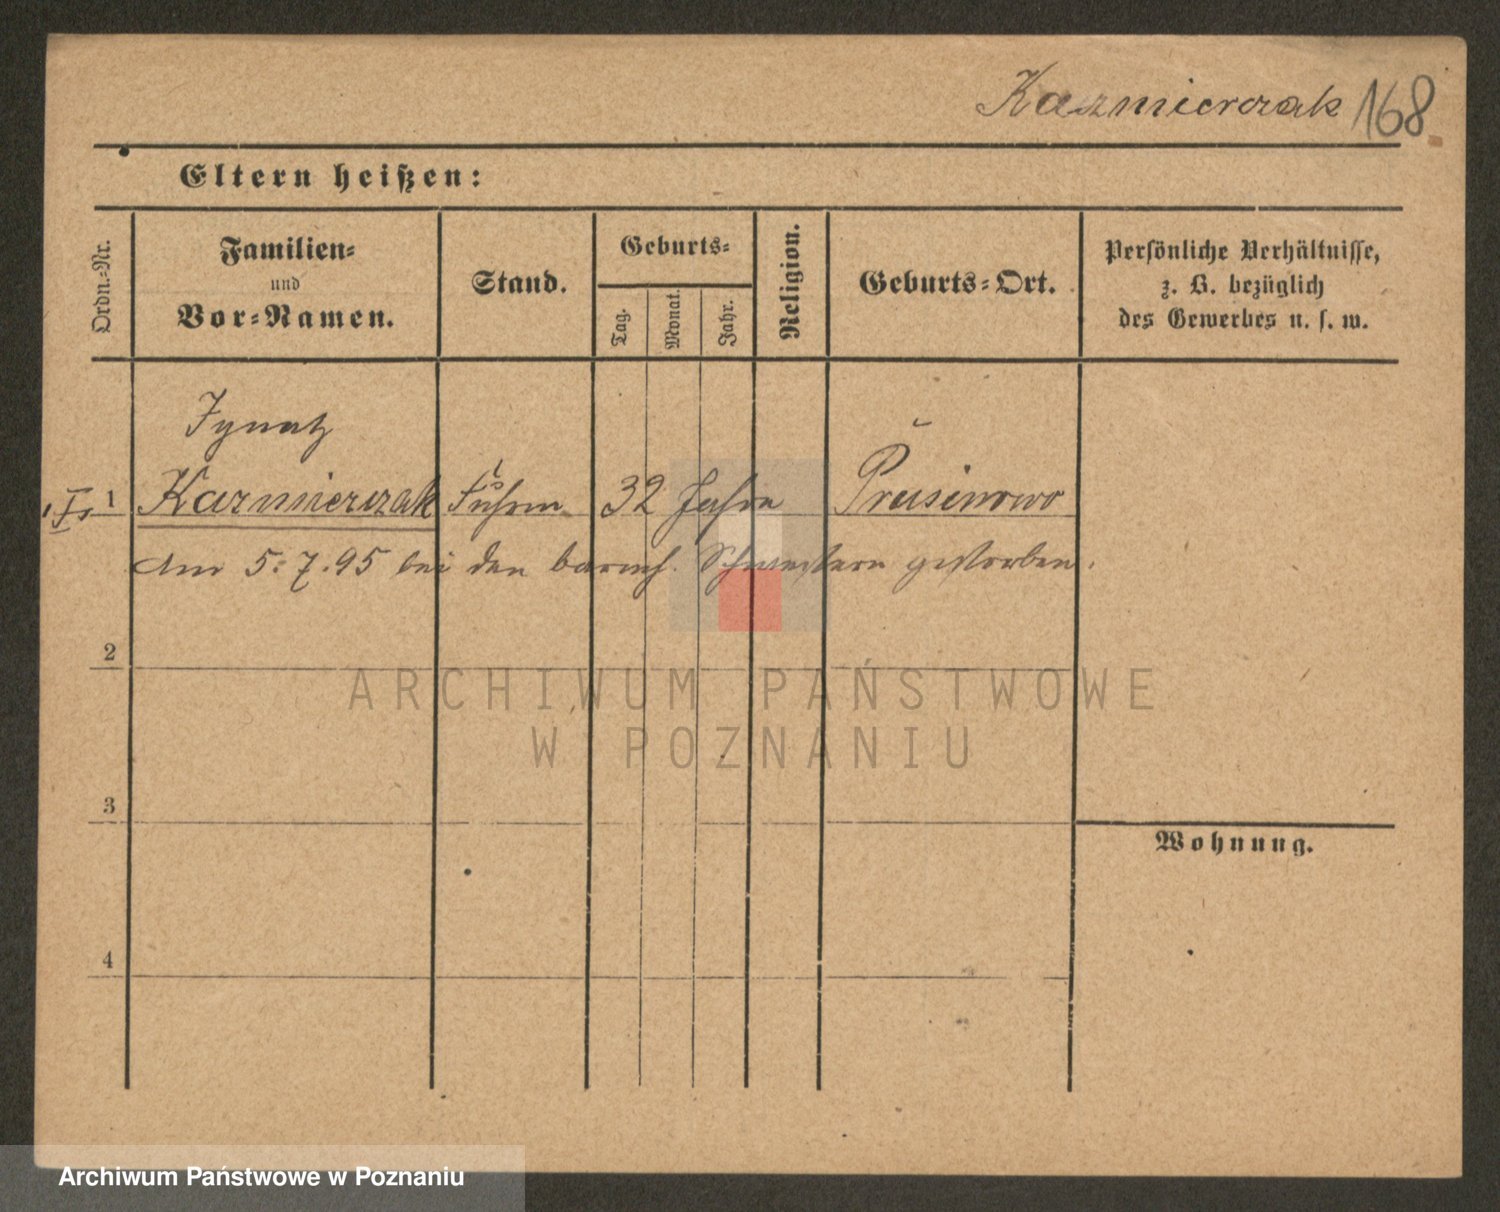 Kazmierczak 168
Eltern heißen:
Ordn.-Nr.
Familien-
und
Vor-Namen.
Stand.
Geburts-
Tag.
Monat.
Jahr.
Religion.
Geburts-Ort.
Persönliche Verhältnisse,
z. B. bezüglich
des Gewerbes u. s. w.
Ignatz
1 Kazmierczak 32 Jahre Prusinowo
Am 5.7.95 bei den barmh. Schwestern gestorben.
2
3
Wohnung.
4
ARCHIWUM PAŃSTWOWE
W POZNANIU
Archiwum Państwowe w Poznaniu